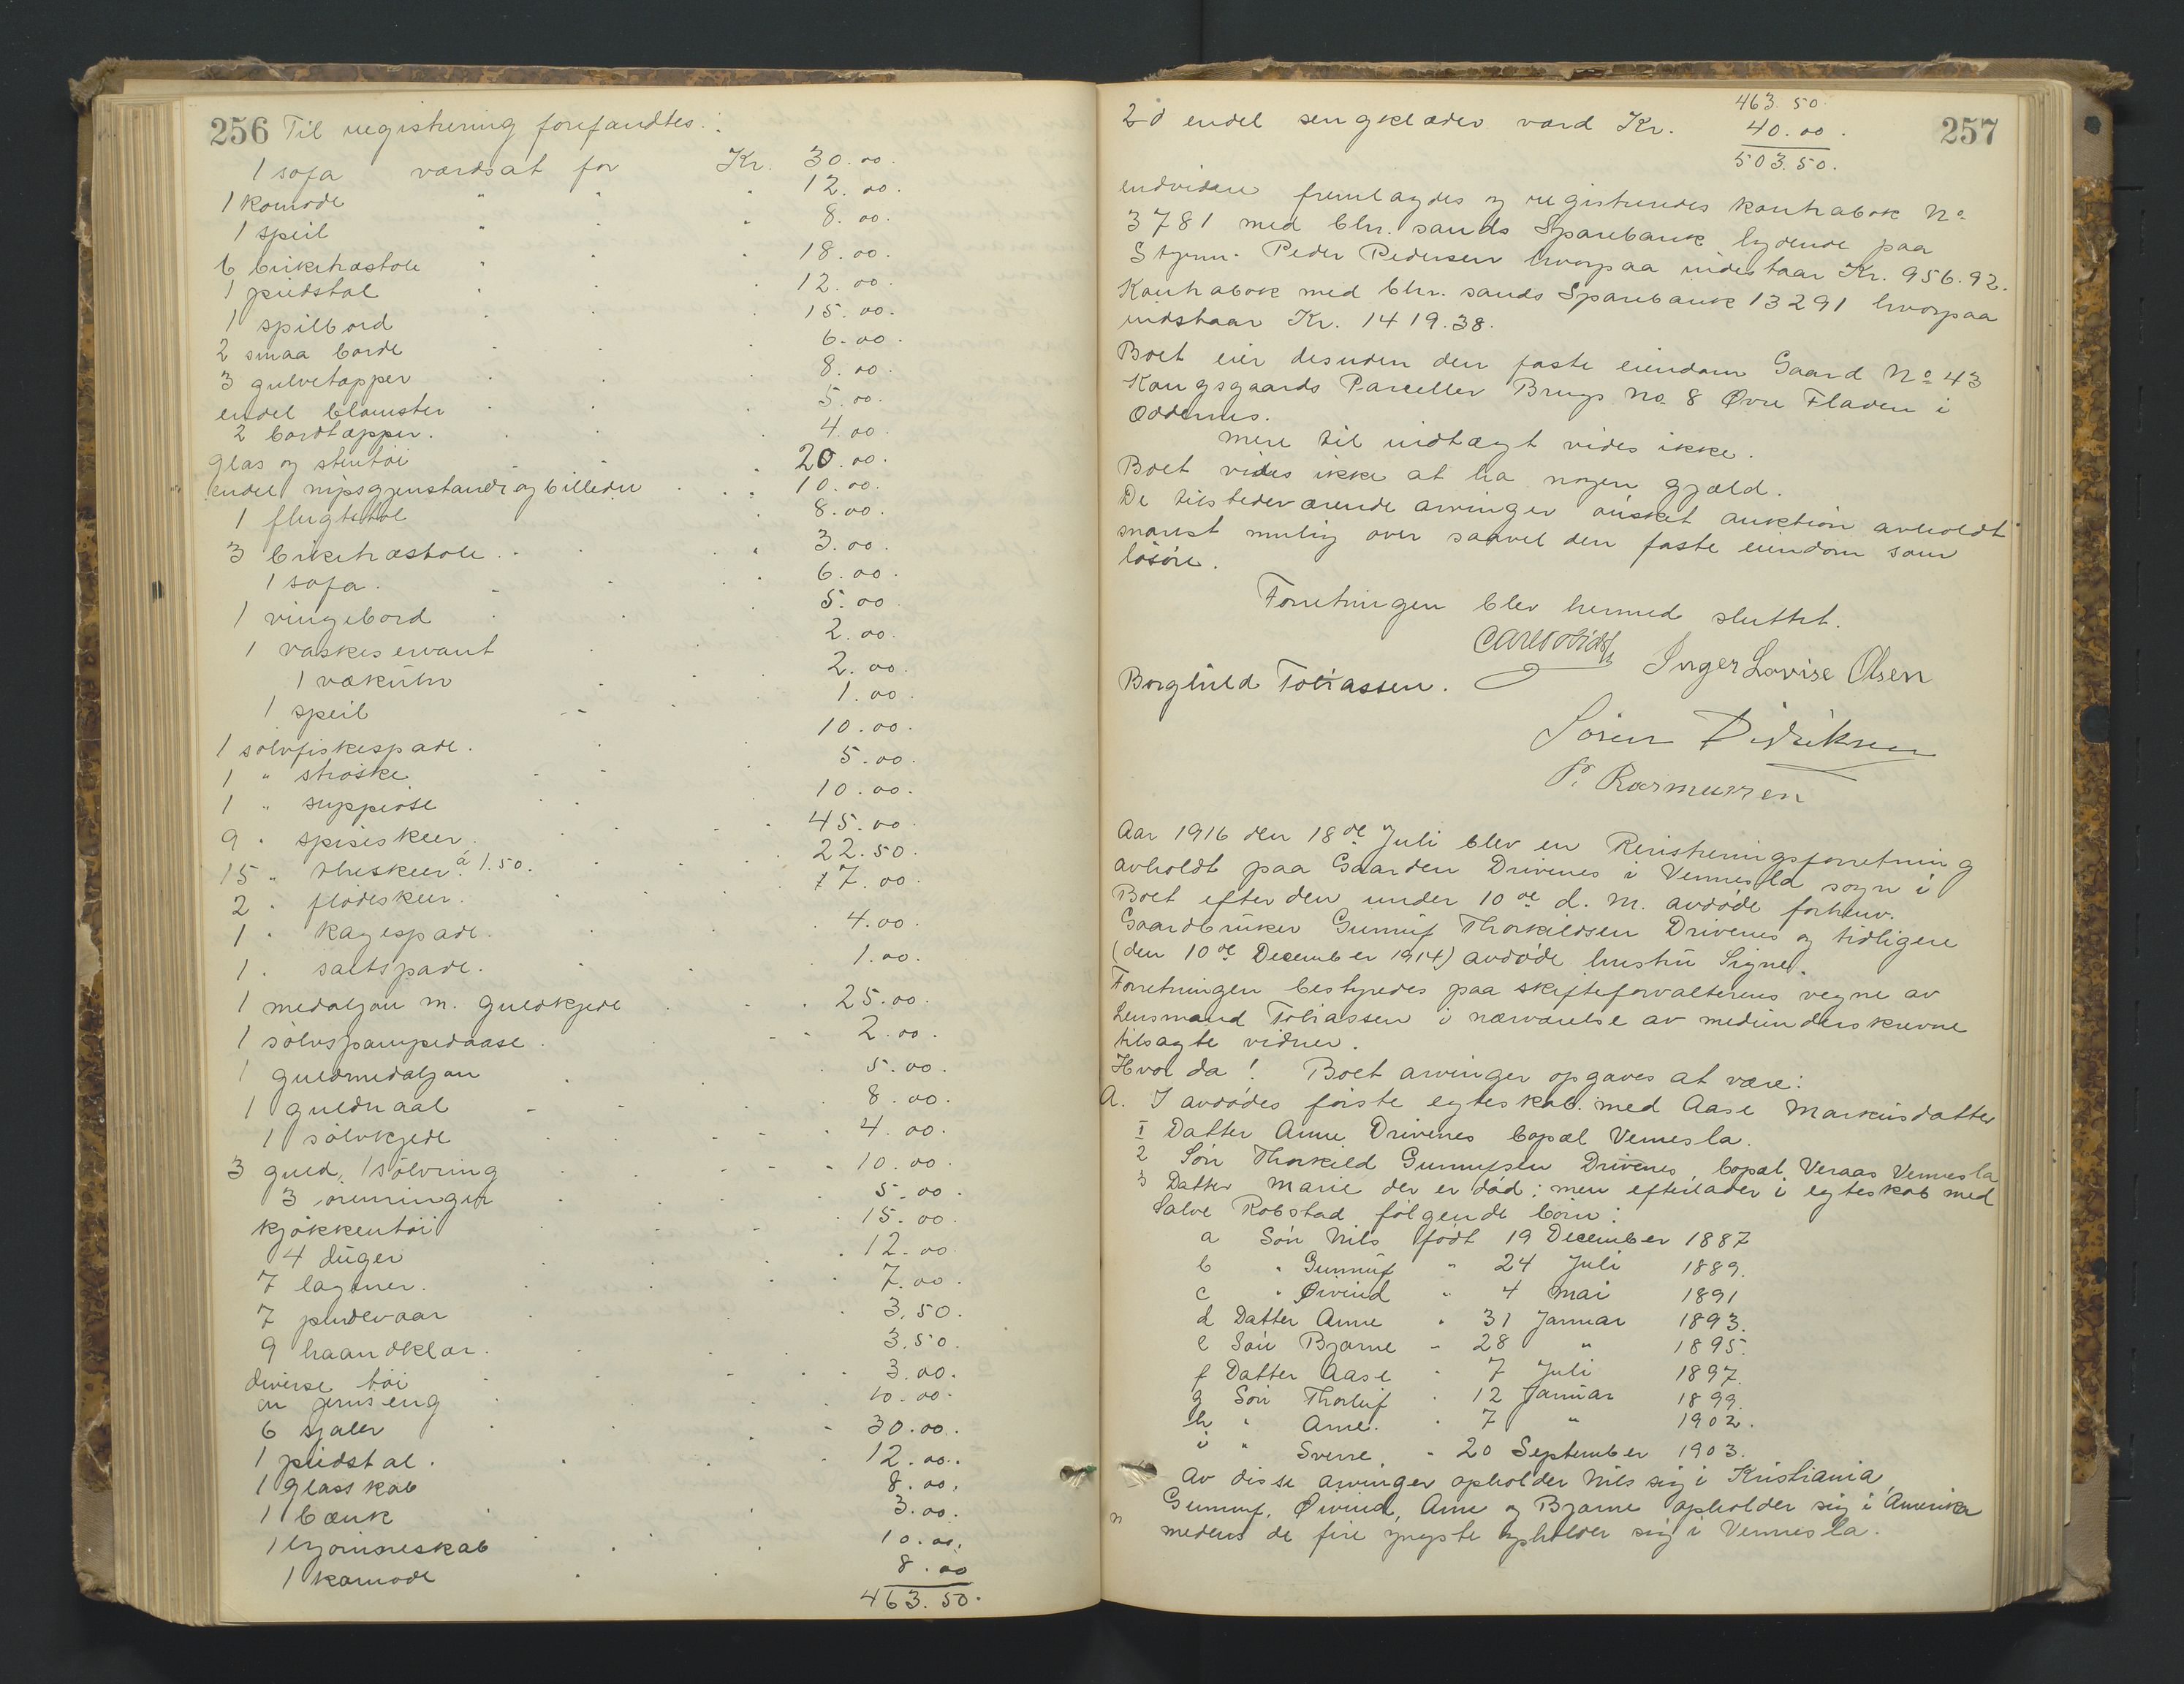 256 Til registrering forefandtes:
1 sofa værdsat for Kr. 30.00.
1 komode " " " 12.00.
1 speil " " 8.00.
6 birketræstole " " " 18.00.
1 pudstol " " " 12.00.
1 spilbord " " 15.00.
2 smaa borde " " " 6.00.
3 gulvetæpper " " " 8.00.
endel blomster " " 5.00.
2 bordtæpper. " " " 4.00.
Glas og stentöi " 20.00.
endel nipsgjenstande og billeder " " 10.00.
1 flugtstol " 8.00.
3 birketræstole " " " 3.00.
1 sofa. " " 6.00.
1 vingebord " " 5.00
1 vaskeservant " " 2.00.
1 vækuhr " " 2.00.
1 speil " " 1.00.
1 sölvfiskespade. " " 10.00.
1 " ströske " " 5.00.
1 " suppeöse " " 10.00.
9 " spiseskeer " " " 45.00.
15 " theskeer à 1.50. " " 22.50.
2 " flödeskeer. " " 7.00.
1 " kagespade. " " 4.00.
1 " saltspade. " " 1.00.
1 medaljon m. guldkjede " " 25.00.
1 sölvspampedaase. " " 2.00.
1 guldmedaljon " " 5.00.
1 guldnaal " " " 8.00.
1 sölvkjede " " " 4.00.
3 guld, 1 sölvring " " " 10.00.
3 öreuringer " " 5.00.
kjökkentöi " " " 15.00.
4 duger " " " 12.00
7 lagener. " " " 7.00.
7 pudevaar " " " 3.50.
9 haandklær. " " 3.50.
diverse töi " " " 3.00.
en jernseng " " " 10.00.
6 sjaler " " " 30.00.
1 pudstol. " " 12.00.
1 Glasskab " " 8.00.
1 bænk " " 3.00.
1 hjörneskab " " 10.00.
1 komode " " 8.00
463.50.
463.50
2d endel sengklæder værd Kr. 40.00. 257
503.50.
endvidere fremlagdes og registreredes kontrabok No
3781 med Chr. sands Sparebank lydende paa
Styrm. Peder Pedersen hvorpaa indestaar Kr. 956.92.
Kontrabok med Chr. sands Sparebank 13291 hvorpaa
indstaar Kr. 1419.38.
Boet eier desuden den faste eiendom Gaard No 43
Kongsgaards Parceller Brugs no 8 Øvre Fladen i
Oddernes.
mere til indtægt vides ikke.
Boet vides ikke at ha nogen gjæld.
De tilstedeværende arvinger önsket auktion avholdt
snarest mulig over saavel den faste eiendom som
lösöre.
Forretningen blev hermed sluttet.
Inger Lovise Olsen
Borghild Tobiassen.
Sören Didriksen
P. Rasmussen
Aar 1916 den 18de Juli blev en Reristreringsforretning
avholdt paa Gaarden Drivenes i Vennesla sogn i
Boet efter den under 10de d. m. avdöde forhenv.
Gaardbruker Gunnuf Thorkildsen Drivenes og tidligere
(den 10de December 1914) avdöde hustru Signe.
Forretningen bestyredes paa skifteforvalterens vegne av
Lensmand Tobiassen i nærværelse av medunderskrevne
tilsagte vidner.
Hvor da! Boet arvinger opgaves at være:
A. I avdödes förste egteskab med Aase Markusdatter
I Datter Anne Drivenes bopæl Vennesla.
2 Sön Thorkild Gunnufsen Drivenes, bopæl Veraas Vennesla
3 Datter Marie der er död; men efterlader i egteskab med
Salve Robstad fölgende börn:
a Sön Nils födt 19 December 1887
b " Gunnuf " 24 Juli 1889.
c " Øivind " 4 Mai 1891
d Datter Anne " 31 Januar 1893.
e Sön Bjarne " 28 " 1895.
f Datter Aase " 7 Juli 1897.
g Sön Thorleif " 12 Januar 1899.
h " Arne. " 7 " 1902.
i " Sverre " 20 September 1903.
Av disse arvinger opholder Nils sig i Kristiania,
Gunnuf, Øivind, Anne og Bjarne opholder sig i Amerika
medens de fire yngste opholder sig i Vennesla.